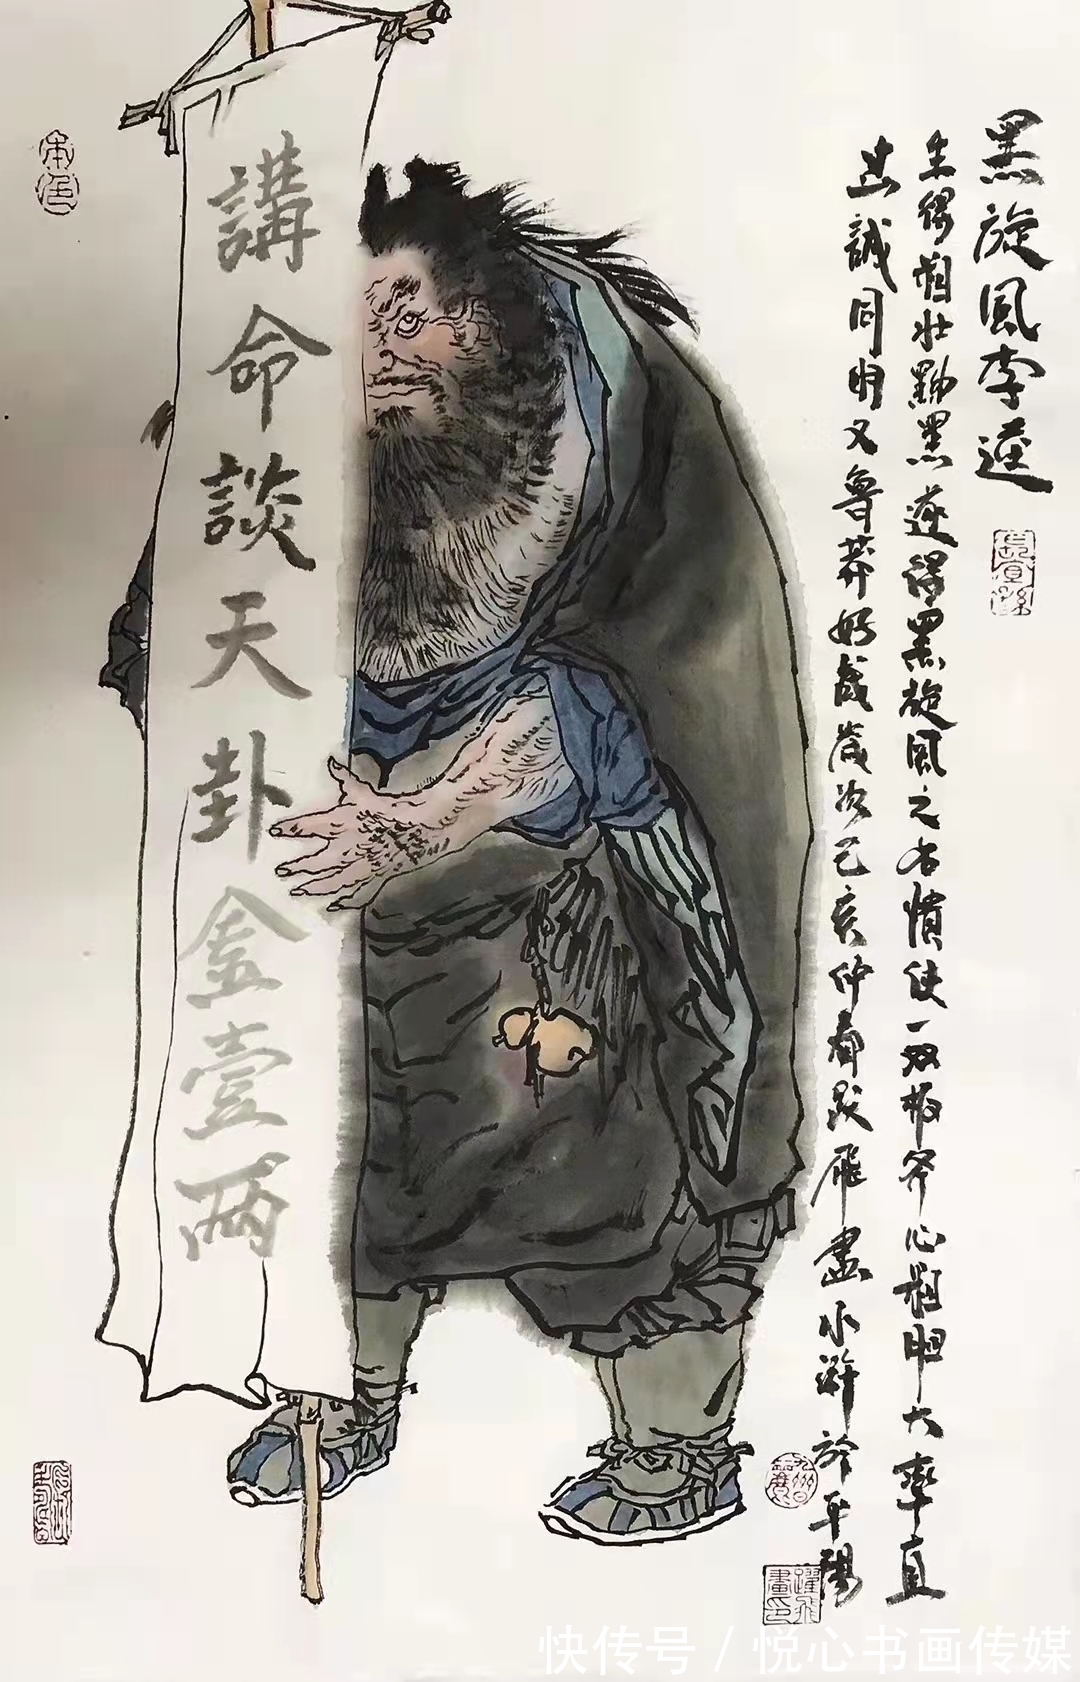 黑旋風李逵
生得粗壮黝黑遂得黑旋風之名慣使一双板斧心粗胆大率直
忠誠同时又魯莽好歲次己亥仲春跃飛畫水滸於平陽
講命談天卦金壹兩
本色
躍飛畫印
快传号 / 悦心书画传媒